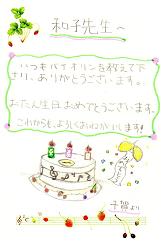 和子先生へ
いつもバイオリンを教えて下
さり、ありがとうございます。
おたん生日おめでとうございます。
これからも、よろしくおねがいします!
より